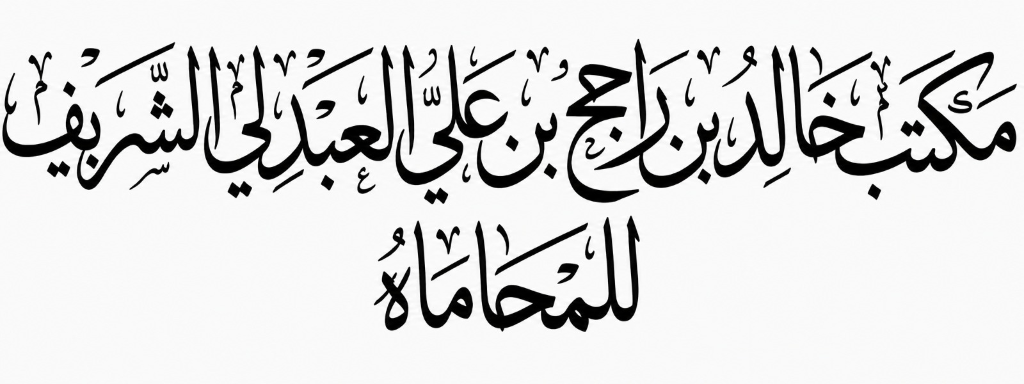 مَكْتَب خَالِدُ بن رَاجح بُن عَليُّ العَبْدِلي الشَّريف
للمْحَامَاهُ